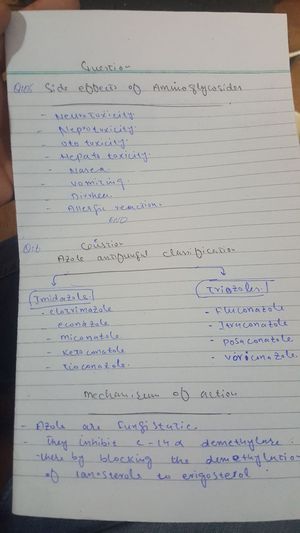 Question
Side effects of Aminoglycosides
- Neurotoxicity
- Neprotoxicity
- Oto toxicity
- Hepato toxicity
- Nasea
- Vomiting
- Dirrhea
- Allergic reaction.
END
Azole antifungal classification
Imidazole
Triazoles
- Clotrimazole
- Fluconazole
econazole
- Itruconatole
- miconatole
- posaconatole
- Ketoconatole
- voriconazole.
- Tioconazole.
mechanism of action
- Azole are Fungistatic.
- They inhibit c-14α demethylase
there by blocking the demethylation
of lanosterols to erigosterol.